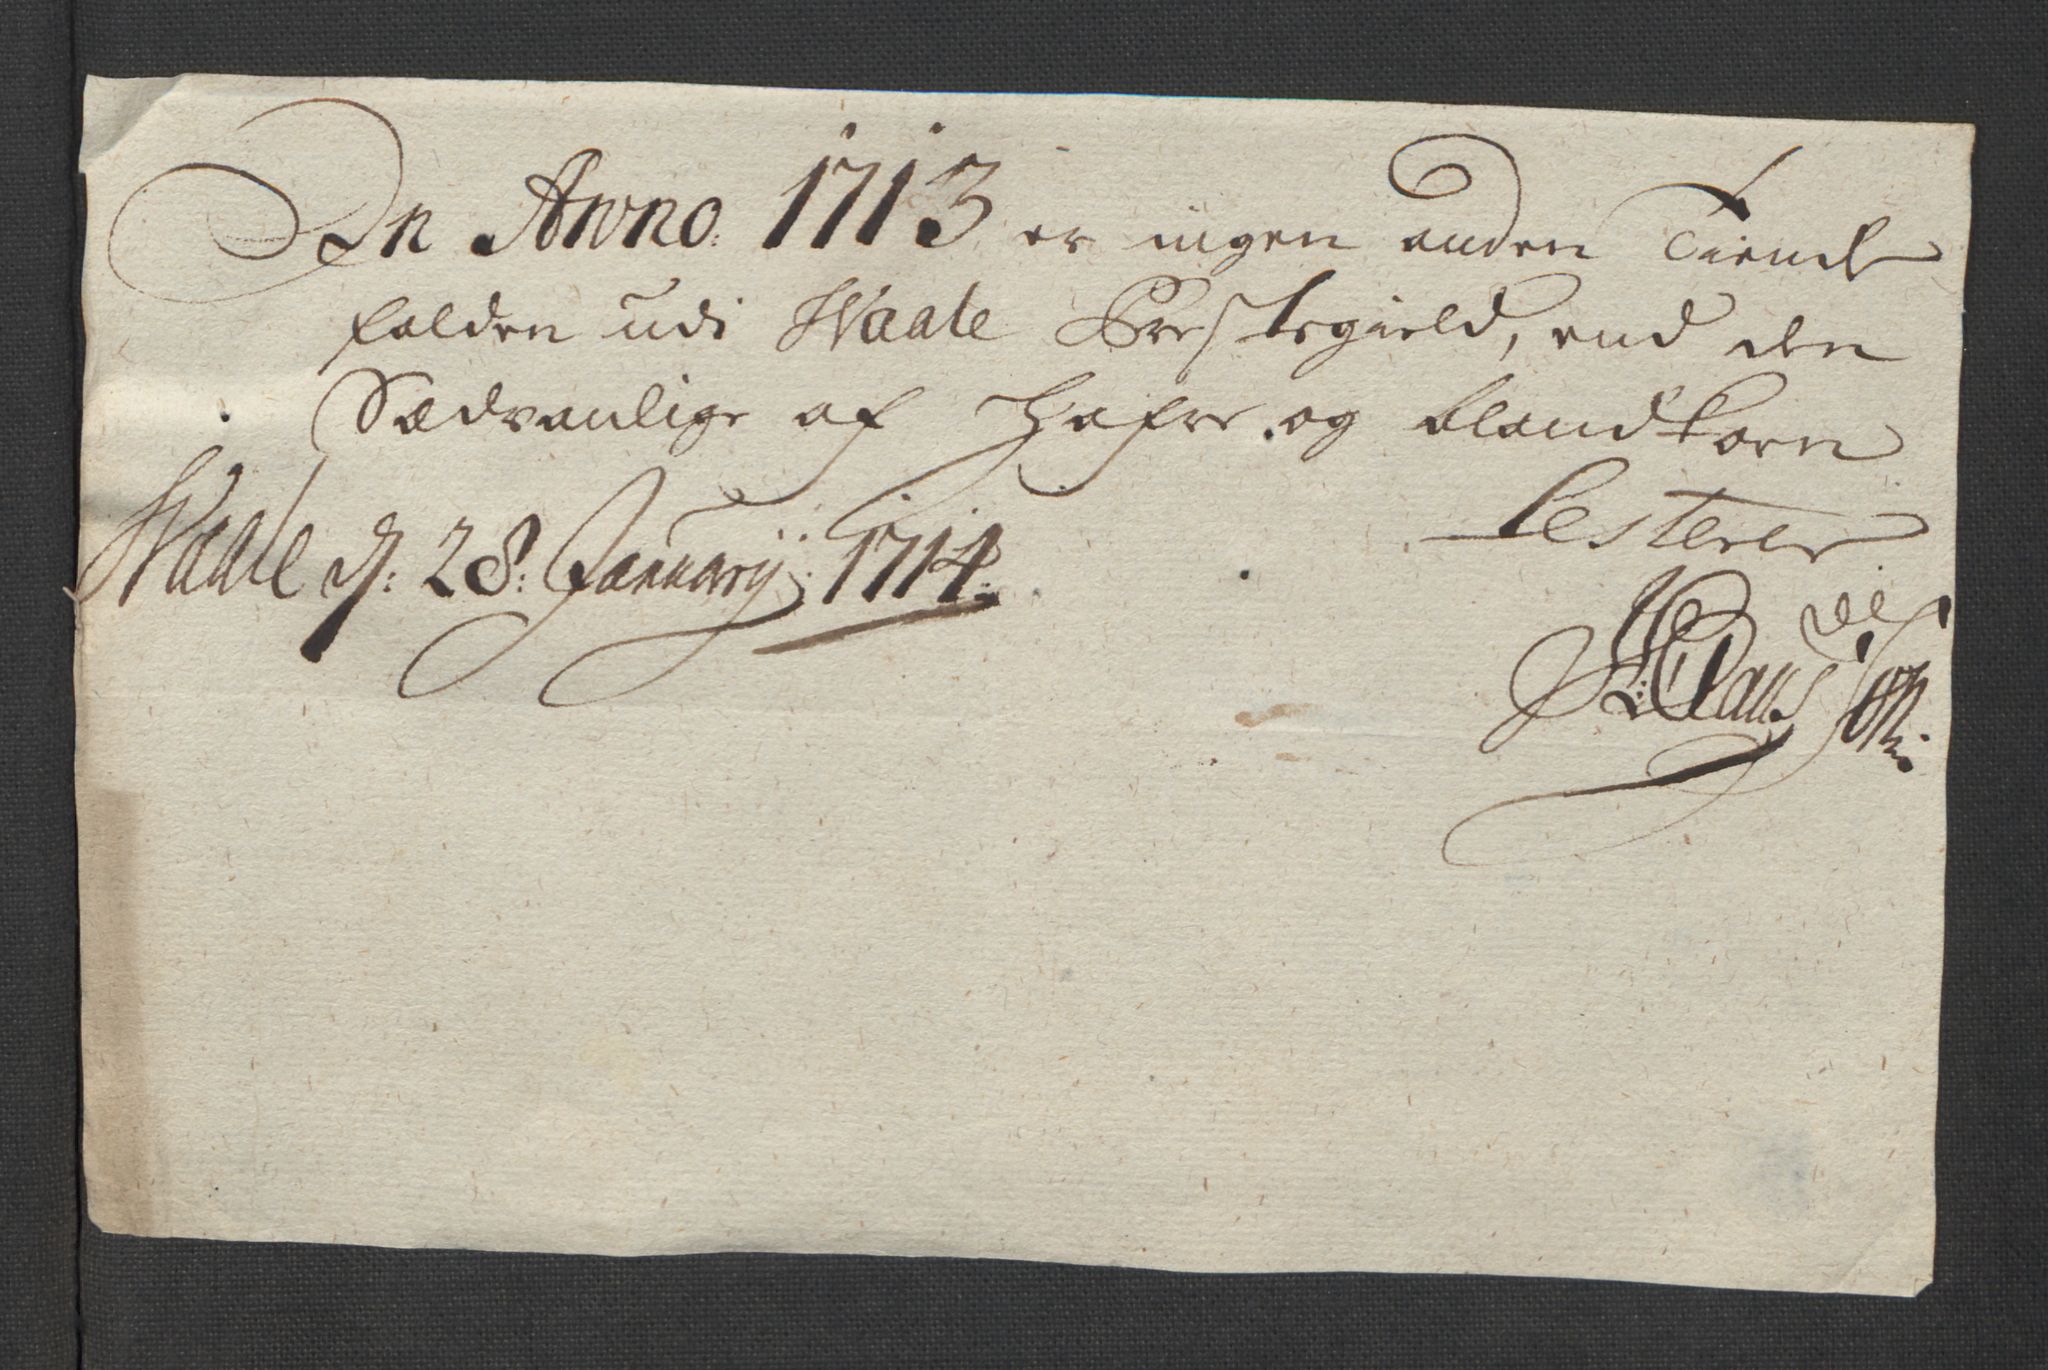 In Anno. 1713 er ingen anden Tiende
falden udi Waale Prestegield, end den
Sædvanlige af Hafre og blandkorn
Testerer
Waale d. 28. January 1714.